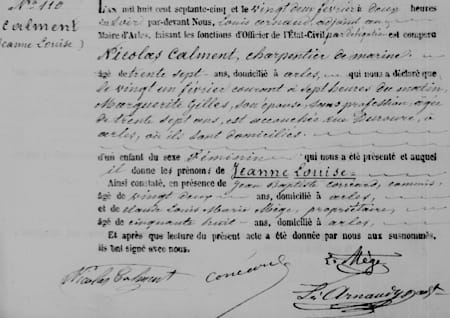 N° 110
Calment
(Jeanne Louise)
L'an mil huit cent septante-cinq et le vingt deux février à deux heures
du soir par-devant Nous, Louis
Maire d'Arles, faisant les fonctions d'Officier de l'État-Civil par délégation est comparu
Nicolas Calment, charpentier de marine
âgé de trente sept ans, domicilié à arles, qui nous a déclaré que
le vingt un février courant à sept heures du matin,
Marguerite Gilles, son épouse, sans profession, âgée
de trente sept ans, est accouchée rue du roure, à
arles, où ils sont domiciliés.
d'un enfant du sexe féminin qui nous a été présenté et auquel
il donne les prénoms de Jeanne Louise
Ainsi constaté, en présence de Jean Baptiste commis,
âgé de vingt deux ans, domicilié à arles,
et de Louis Marie Mège, propriétaire,
âgé de cinquante huit ans, domicilié à arles,
Et après que lecture du présent acte a été donnée par nous aux susnommés,
ils ont signé avec nous.
Nicolas Calment
L. Mège
Ls Arnaud